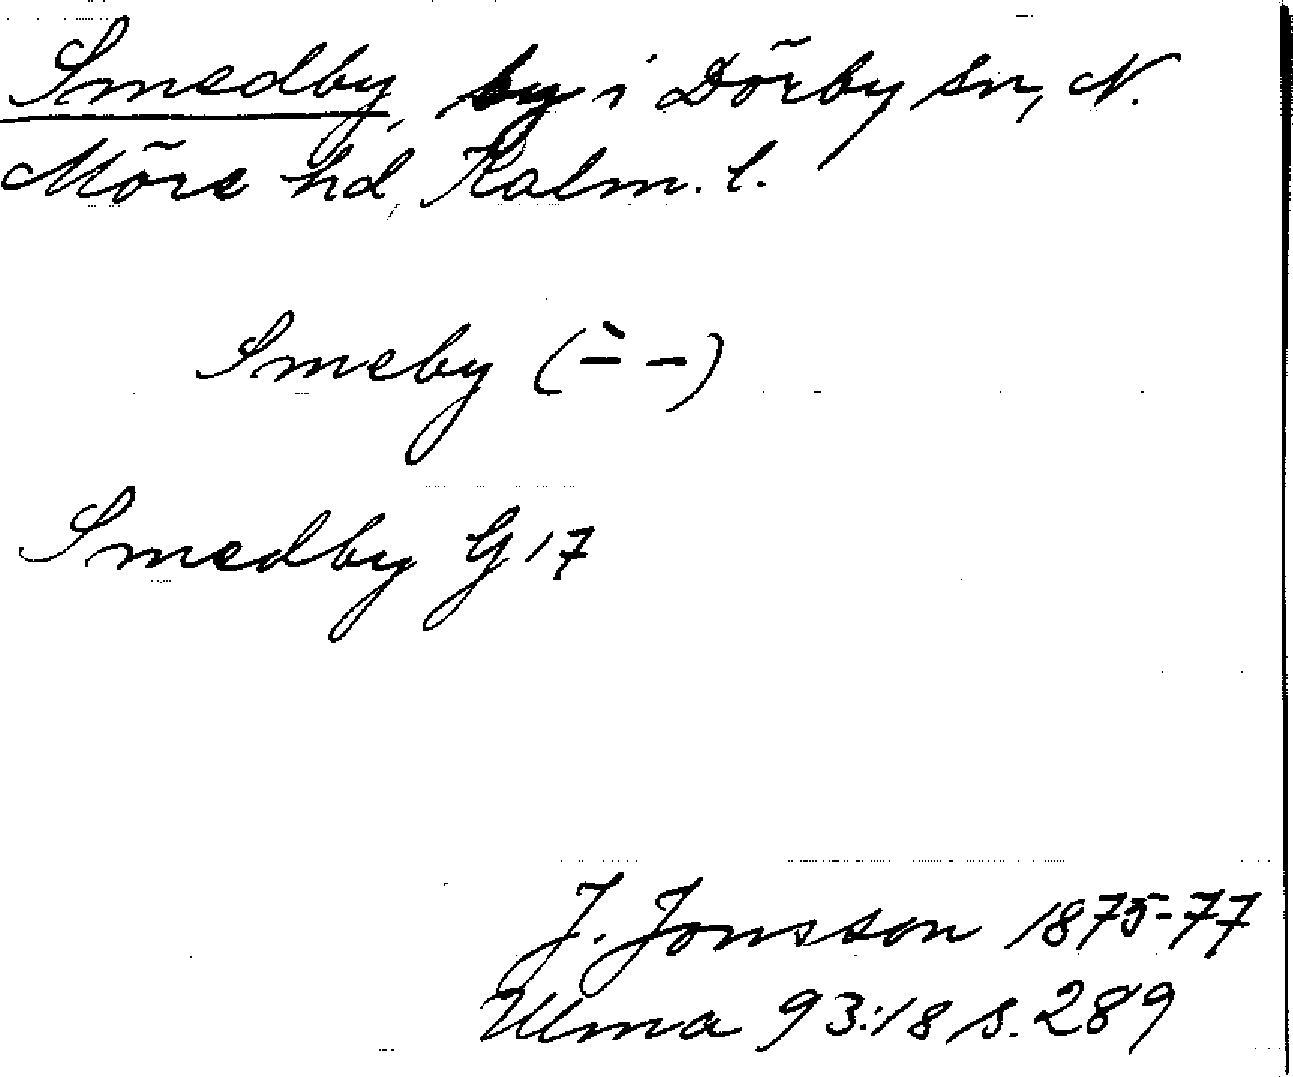 Smedby, by i Dörby sn, N.
Möre hd, Kalm. l.
Smeby (̀– –)
Smedby G 17
J. Jonsson 1875-77
Ulma 93:18 s. 289